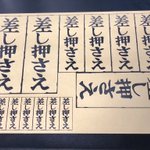 差し押さえ
差し押さえ
差し押さえ
差し押さえ
差し押さえ
差し押さえ
差し押さえ
差し押さえ
差し押さえ
差し押さえ
差し押さえ
差し押さえ